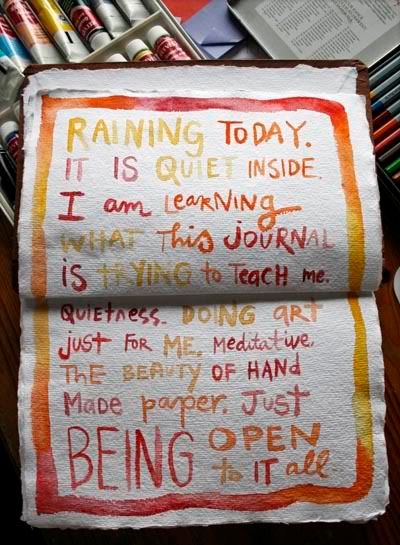 RAINING TODAY.
IT IS QUIET INSIDE.
I am LeaRNing
WHAT This JOURNAL
iS TRYING to TeacH me.
QUIETNess. DOING ART
just FOR ME. Meditative.
THE BEAUTY OF HANd
Made paper. Just
BEING OPEN
to IT all.